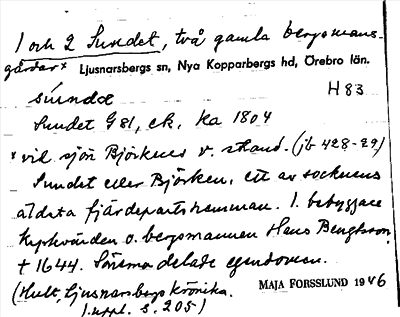 1 och 2 Sundet, två gamla bergsmans-
gårdar x Ljusnarsbergs sn, Nya Kopparbergs hd, Örebro län.
H 83
sundæ
Sundet G 81, ek. ka 1804
x vid sjön Björkens v. strand. (jb 428-29)
Sundet eller Björken, ett av socknens
äldsta fjärdepartshemman. 1. bebyggare
kyrkvärden o. bergsmannen Hans Bengtsson,
† 1644. Sönerna delade egendomen.
(Hult, Ljusnarsbergs krönika.
1. uppl. s. 205)
MAJA FORSSLUND 1946